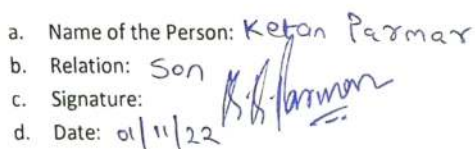 a. Name of the Person: Ketan Parmar
b. Relation: Son
c. Signature: K.R.Parmar
d. Date: 01/11/22